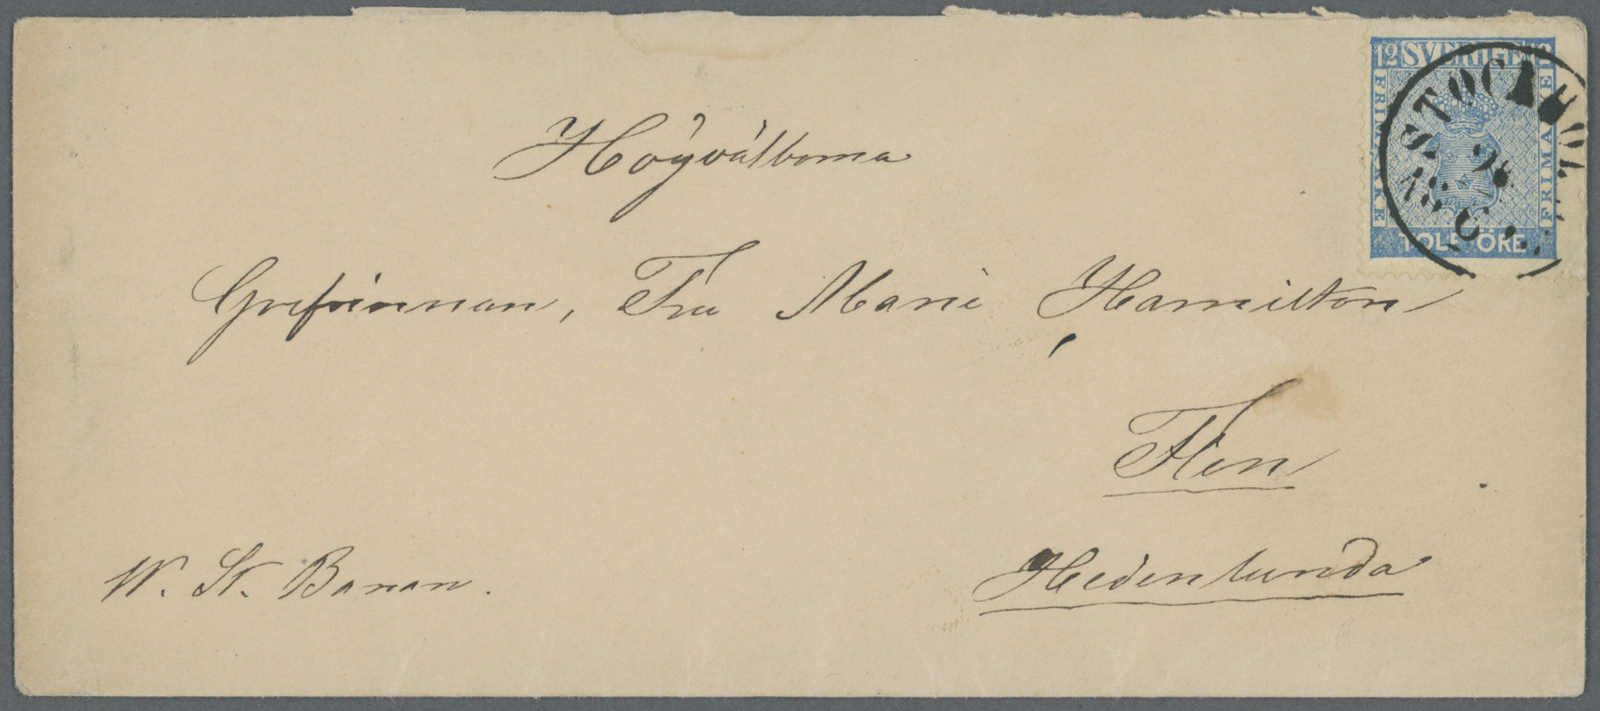 12 SVERIGE 12
FRIMÄRKE
FRIMÄRKE
TOLF ÖRE
STOCKHOL
26
Högvälborna
Grefvinnan, Fru Marie Hamilton
Flen
Hedenlunda
W. St. Banan.